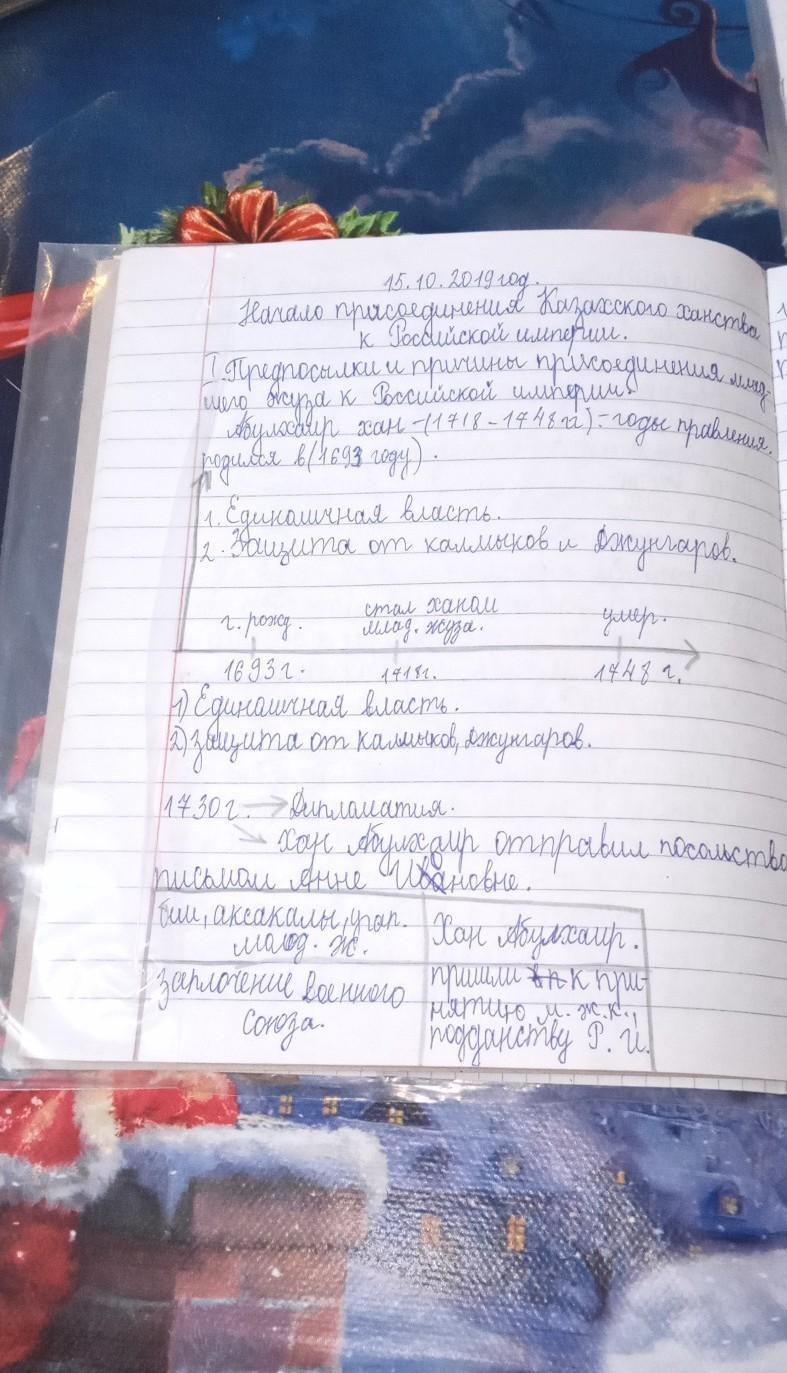 15.10.2019 год.
Начало присоединения Казахского ханства
к Российской империи.
I. Предпосылки и причины присоединения млад-
шего жуза к Российской империи.
Абулхаир хан - (1718 - 1748 гг) - годы правления.
родился в (1693 году).
1. Единоличная власть.
2. Защита от калмыков и Джунгаров.
г. рожд. стал ханом умер.
млад. жуза.
1693 г. 1718 г. 1748 г.
1) Единоличная власть.
2) Защита от калмыков, джунгаров.
1730 г. → Дипломатия.
→ Хан Абулхаир отправил посольство
письмом Анне Ивановне.
бии, аксакалы, Хан Абулхаир.
ж.
военного пришли к при-
союза. нятию м. ж. к.,
подданству Р. И.